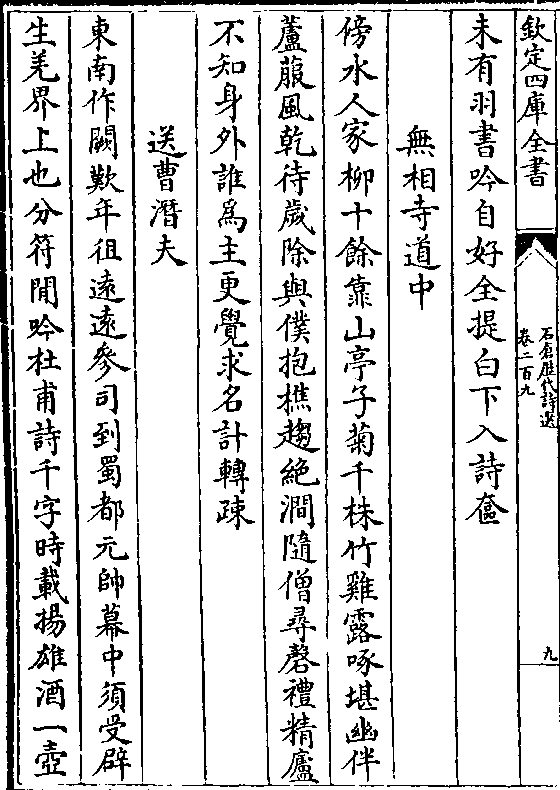 欽定四庫全書
石倉歷代詩選
卷二百九
九
未有羽書吟自好全提白下入詩奩
無相寺道中
傍水人家柳十餘靠山亭子菊千株竹雞露啄堪幽伴
蘆菔風乾待歲除與僕抱樵趨絶澗隨僧尋磬禮精廬
不知身外誰爲主更覺求名計轉疎
送曹潛夫
東南作闕歎年徂逺逺參司到蜀都元帥幕中須受辟
生羌界上也分符閒吟杜甫詩千字時載揚雄酒一壺